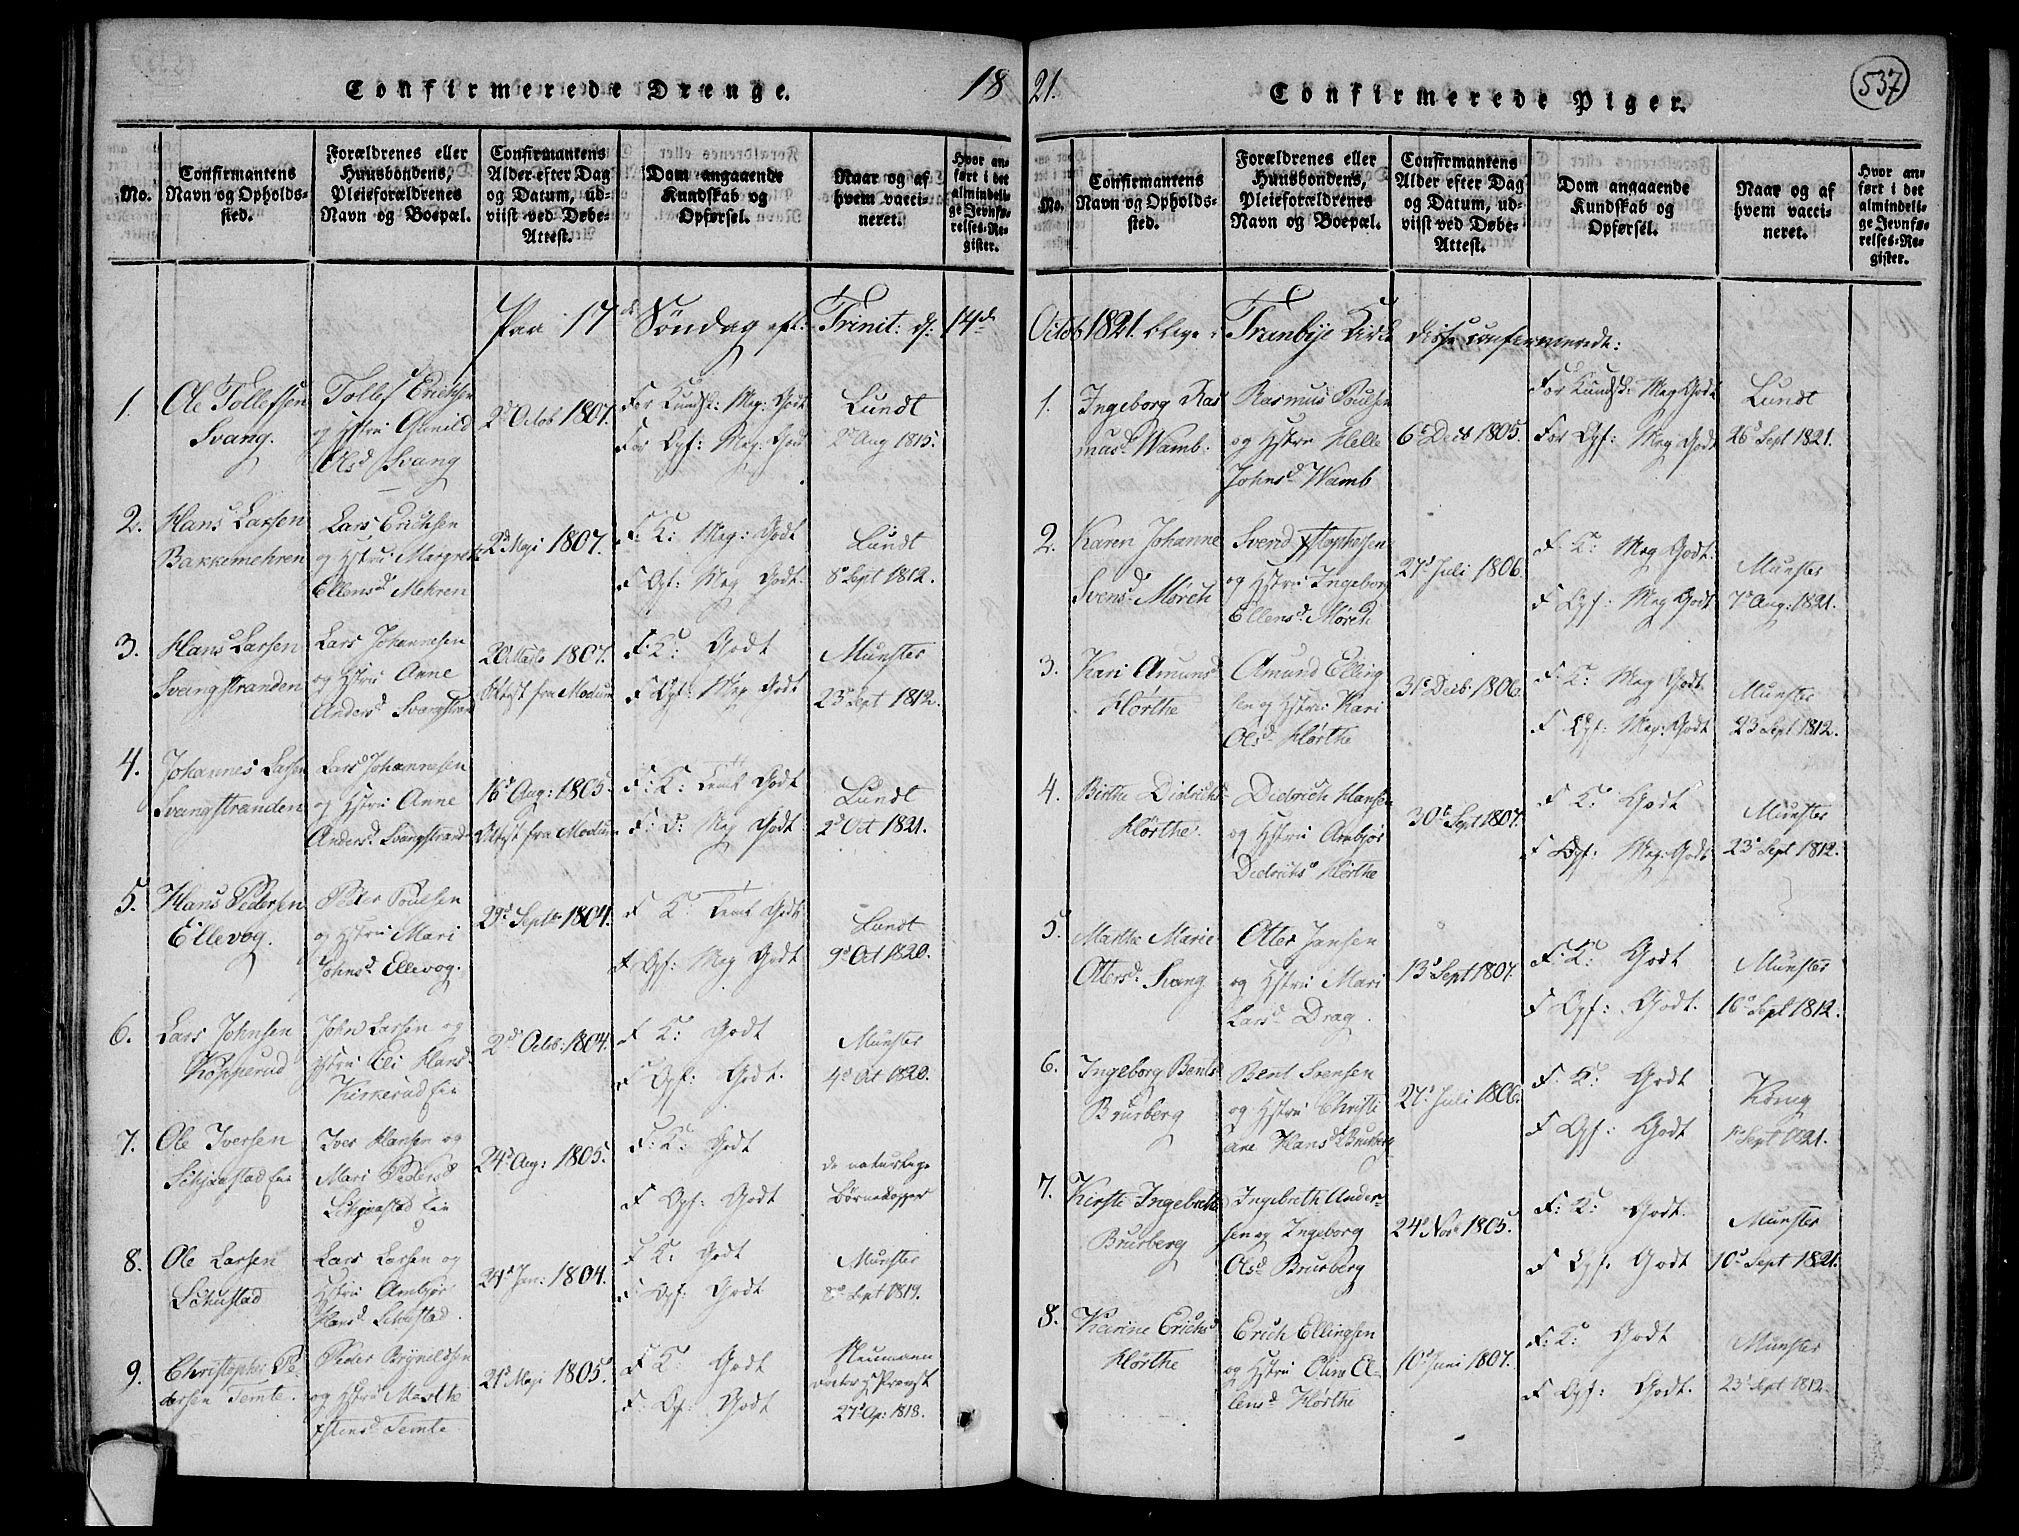 Confirmerede Drenge.
18
No.
Confirmantens Navn og Opholdssted.
Forældrenes eller Huusbondens, Pleieforældrenes Navn og Boepæl.
Confirmantens Alder efter Dag og Datum, udviist ved Døbe-Attest.
Dom angaaende Kundskab og Opførsel.
Naar og af hvem vaccineret.
Hvor anført i det almindelige Jevnførelses-Register.
Paa 17de Søndag eft: Trinit: d: 14de
1.
Ole Tollefsen
Svang.
Tollef Erichsen
og Hstru Gunild
Olsd Svang
2d Octob 1807.
For Kundsk: Meg: Godt
For Opf: Meg: Godt
Lundt
2d Aug 1815.
2.
Hans Larsen
Bakkemehren
Lars Erichsen
og Hstru Margrete
Ellensd Mehren
2d Maji 1807.
F. K: Meg: Godt
F Opf: Meg Godt.
Lundt
8d Sept 1812.
3.
Hans Larsen
Svangstranden
Lars Johannesen
og Hstru Anne
Andersd Svangstran
1807.
Attest fra Modum
F. K: Godt
F Opf: Meg Godt
Munster
23d Sept 1812.
4.
Johannes Larsen
Svangstranden
Lars Johannesen
og Hstru Anne
Andersd Svangstrande
16d Aug: 1805.
Attest fra Modum
F: K: Teml Godt
F: O: Meg Godt.
Lundt
2d Oct 1821.
5.
Hans Pedersen
Ellevog.
Peder Poulsen
og Hstru Mari
Johnsd Ellevog.
29d Septb 1804.
F K: Teml Godt
F Opf: Meg Godt
Lundt
9d Oct 1820.
6.
Lars Johnsen
Kopperud
John Larsen og
Hstru Eli Hansd
Kirkerud Eie
2d Octob: 1804.
F K: Godt
F Opf: Godt.
Munster
4d Oct 1820.
7.
Ole Iversen
Iver Hansen og
Mari Pedersd
24d Aug: 1805.
F: K: Godt
F Opf: Godt
de naturlige
Børnekopper
8.
Ole Larsen
Lars Larsen og
Hstru Ambjør
Hansd
Jan: 1804.
F K: Godt
F Opf: Godt
Munster
8d Sept 1819.
9.
Christopher Pe-
dersen Temte.
Peder Brynildsen
og Hstru Marthe
Temte
21d Maji 1805.
F K: Godt
F: Opf: Godt
Neumann
27d Ap: 1818.
21.
Confirmerede Piger.
537
No.
Confirmantens Navn og Opholdssted.
Forældrenes eller Huusbondens, Pleieforældrenes Navn og Boepæl.
Confirmantens Alder efter Dag og Datum, udviist ved Døbe-Attest.
Dom angaaende Kundskab og Opførsel.
Naar og af hvem vaccineret.
Hvor anført i det almindelige Jevnførelses-Register.
Octob 1821. bleve i Tranbye Kirke disse confirmerede:
1.
Ingeborg Ras
musd Wamb.
Rasmus Poulsen
og Hstru Helle
Johnsd Wamb
6d Decb 1805.
For Kundsk: Meg Godt
For Opf: Meg Godt
Lundt
26d Sept 1821.
2.
Karen Johanne
Svensd Mörch
Svend
og Hstru Ingeborg
Ellensd Mörch
27d Juli 1806.
F. K: Meg Godt.
F Opf: Meg Godt
Munster
7d Aug: 1821.
3.
Kari Amunsd
Hörthe
Amund Elling
sen og Hstru Kari
Olsd Hörthe
31d Decb. 1806.
F. K: Meg Godt.
F Opf: Meg: Godt
Munster
23 Sept 1812.
4.
Birthe Didrichs
Hörthe.
Diedrich Hansen
og Hstru Ambjør
Hörthe
30te Sept 1807.
F K: Godt
F Opf: Meg: Godt
Munster
23d Sept 1812.
5.
Marthe Marie
Ottersd Svang
Otter Jansen
og Hstru Mari
Larsd Drag.
13d Sept 1807.
F. K: Godt
F Opf: Godt.
Munster
16d Sept 1812.
6.
Ingeborg Bentsd
Brusberg
Bent Svensen
og Hstru Christi
ane Hansd Brusberg
27d Juli 1806
F. K: Godt
F Opf: Godt
1d Sept 1821.
7.
Kirsti Ingebreths
Brusberg
Ingebreth Ander-
sen og Ingeborg
Olsd Brusberg
24d Nov 1805.
F: K: Godt.
F Opf. Godt
Munster
10d Sept 1821.
8.
Karine Erichsd
Hörthe
Erich Ellingsen
og Hstru Oline El-
lensd Hörthe
10d Juni 1807.
F: K: Godt
F Opf: Godt.
Munster
23d Sept 1812.